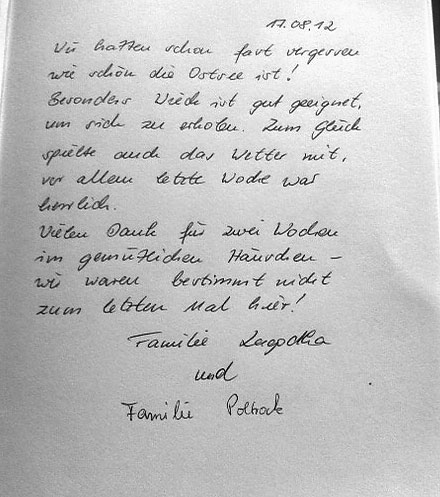 17.08.12
Wir hatten schon fast vergessen
wie schön die Ostsee ist!
Besonders Wieck ist gut geeignet,
um sich zu erholen. Zum Glück
spielte auch das Wetter mit,
vor allem letzte Woche war
herrlich.
Vielen Dank für zwei Wochen
im gemütlichen Häuschen –
wir waren bestimmt nicht
zum letzten Mal hier!
Familie
und
Familie